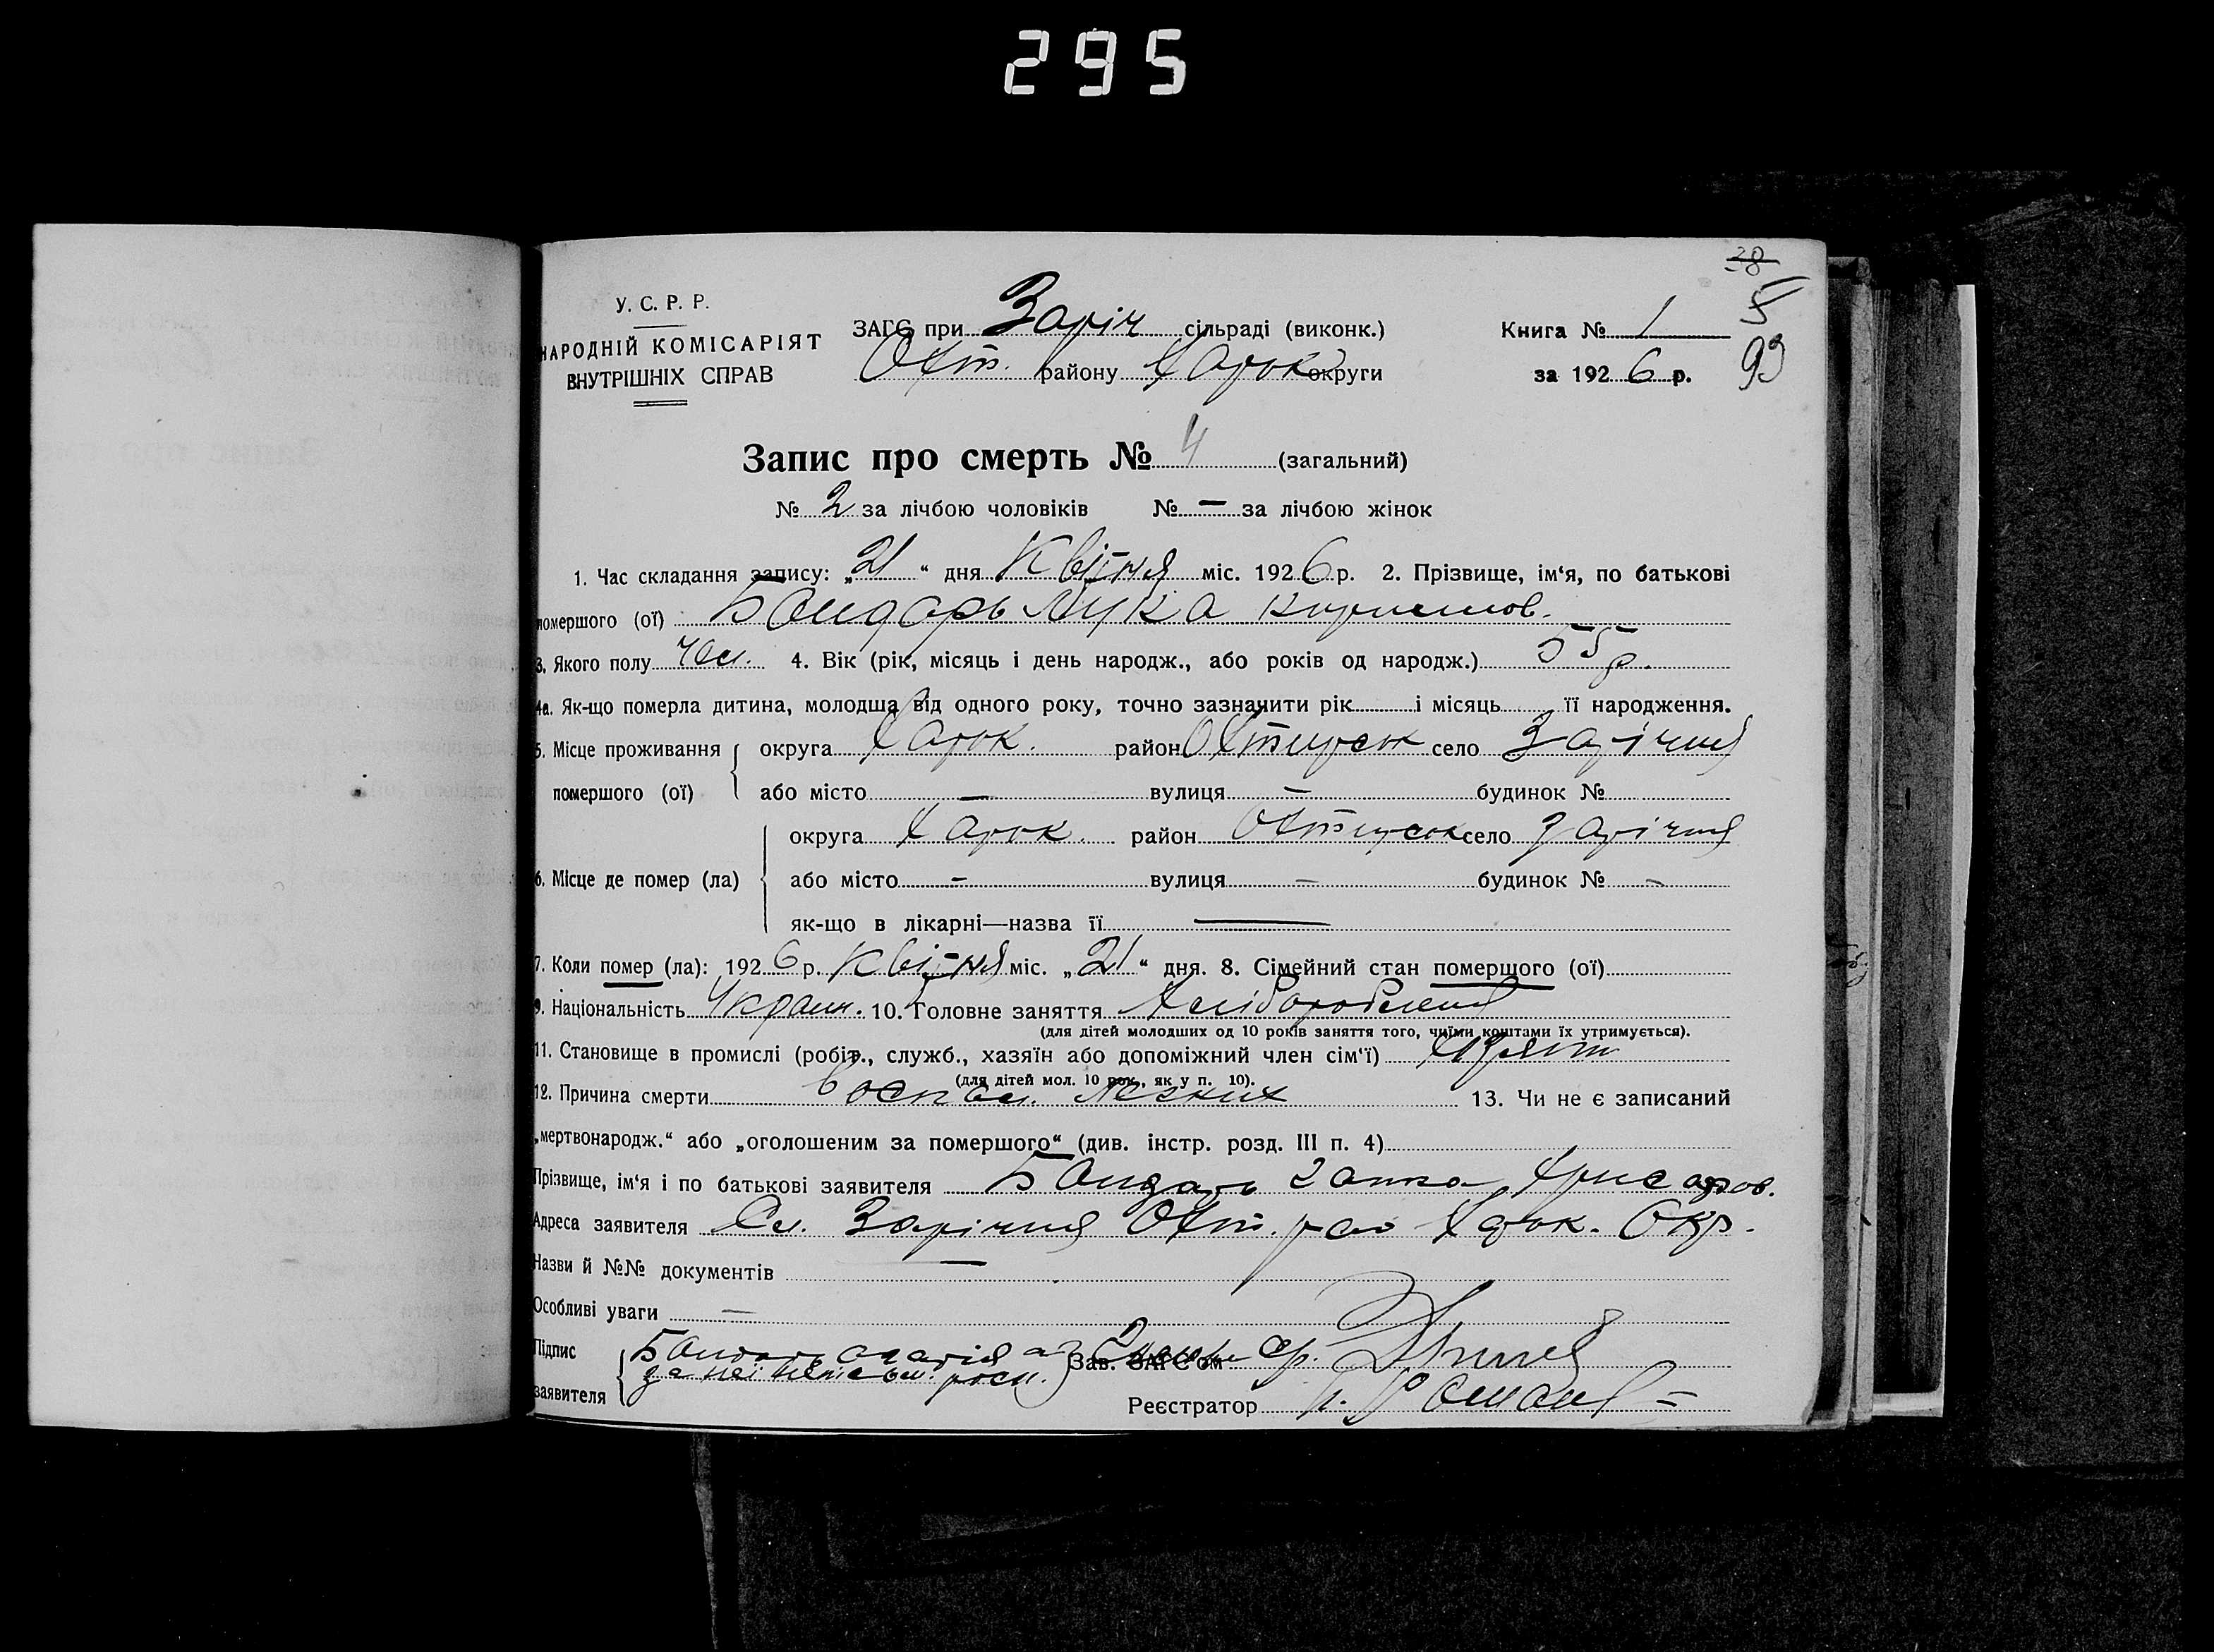 295
38
5
У. С. Р. Р.
НАРОДНІЙ КОМІСАРІЯТ
ВНУТРІШНІХ СПРАВ
ЗАГС при Заріч сільраді (виконк.)
Охт. району Харок округи
Книга № 1
за 1926 р.
93
Запис про смерть № 4 (загальний)
№ 2 за лічбою чоловіків № — за лічбою жінок
1. Час складання запису: „21“ дня Квітня міс. 1926 р. 2. Прізвище, ім‘я, по батькові
помершого (ої) Бондарь Лука
3. Якого полу Чол. 4. Вік (рік, місяць і день народж., або років од народж.) 55 р.
4а. Як-що померла дитина, молодша від одного року, точно зазначити рік і місяць її народження.
5. Місце проживання помершого (ої)
округа Харок. район Охтирсок село Зарічня
або місто — вулиця — будинок №
6. Місце де помер (ла)
округа Харок. район Охтирсок село Зарічня
або місто - вулиця — будинок № -
як-що в лікарні—назва її —
7. Коли помер (ла): 1926 р. Квітня міс. „21“ дня. 8. Сімейний стан помершого (ої)
9. Національність Украин. 10. Головне заняття Хлібороблення
(для дітей молодших од 10 років заняття того, чиїми коштами їх утримується).
11. Становище в промислі (робіт., служб., хазяїн або допоміжний член сім‘ї)
(для дітей мол. 10 рок., як у п. 10).
12. Причина смерти Воспал. Легких 13. Чи не є записаний
„мертвонародж.“ або „оголошеним за помершого“ (див. інстр. розд. III п. 4)
Прізвище, ім‘я і по батькові заявителя Бондарь
Адреса заявителя Сл. Зарічня Охт. рай Харок. Окр.
Назви й №№ документів —
Особливі уваги —
Підпис заявителя Бондарь
за неї росп.
Зав. ЗАГС‘ом
Реєстратор